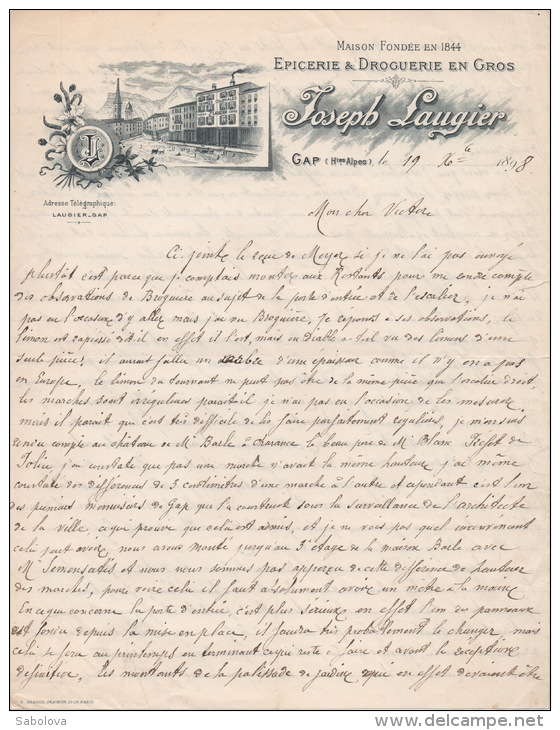 MAISON FONDÉE EN 1844
EPICERIE & DROGUERIE EN GROS
Joseph Laugier
GAP (Htes Alpes), le 19 Xbre 1898
JL
Adresse Télégraphique:
LAUGIER_GAP
Mon cher Victore
Ci-jointe le reçu de Meyer si je ne l'ai pas envoyé
plustôt c'est parce que je comptais monter aux pour me rendre compte
des observations de Broguière au sujet de la porte d'entrée et de l'escalier, je n'ai
pas eu l'occasion d'y aller mais j'ai vu Broguière, je réponds a ses observations, le
limon est rapiessé dit il en effet il l'est, mais ou Diable a-t-il vu des limons d'une
seule pièce! il aurait fallu un arbre d'une epaisseur comme il n'y en a pas
en Europe, le limon du tournant ne peut pas être de la même pièce que l'escalier droit.
les marches sont irregulières parait il je n'ai pas eu l'occasion de les mesurer
mais il parait que c'est tres difficile de les faire parfaitement regulières, je m'en suis
rendu compte au château de Mr Barle à Charance le beau père de Mr Blanc Prefet de
Police, j'ai constaté que pas une marche n'avait la même hauteur, j'ai même
constaté des differences de 3 centimètres d'une marche à l'autre et cependant c'est l'un
des premiers menuisiers de Gap qui l'a construit sous la surveillance de l'architecte
de la ville, ce qui prouve que cela est admis, et je ne vois pas quel inconvenient
cela peut avoir, nous avons monté jusqu'au 3e étage de la maison Barle avec
Mr et nous nous sommes pas apperçu de cette difference de hauteur
des marches, pour voir cela il faut absolument avoir un mètre à la main
En ce qui concerne la porte d'entrée, c'est plus serieux en effet l'un des panneaux
est fendu depuis la mise en place, il faudra très probablement le changer, mais
cela se fera au printemps en terminant ce qui reste à faire et avant la reception
definitive, les montants de la palissade du jardin qui en effet devaient être
Sabolova
www.delcampe.net